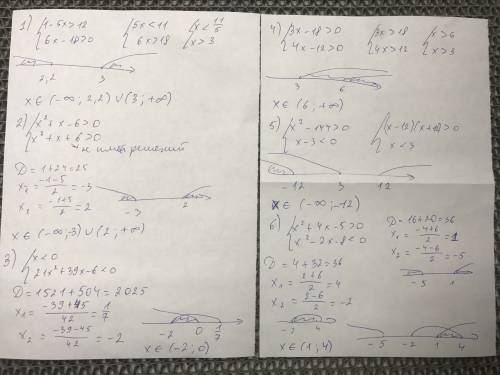 1) { 1-5x>12
6x-18>0
{ 5x<11
6x>18
{ x<11/5
x>3
2,2 3
x∈(-∞; 2,2)∪(3; +∞)
2) { x²+x-6>0
x²+x+6>0
н имеет решений
D=1+24=25
x₂=(-1-5)/2=-3
x₁=(-1+5)/2=2
-3 2
x∈(-∞;-3)∪(2; +∞)
3) { x<0
21x²+39x-6<0
D=1521+504=2025
x₁=(-39+45)/42=1/7
x₂=(-39-45)/42=-2
-2 0 1/7
x∈(-2; 0)
4) { 3x-18>0
4x-12>0
{ 3x>18
4x>12
{ x>6
x>3
3 6
x∈(6; +∞)
5) { x²-144>0
x-3<0
{ (x-12)(x+12)>0
x<3
-12 3 12
x∈(-∞;-12)
6) { x²+4x-5>0
x²-2x-8<0
D=16+20=36
x₁=(-4+6)/2=1
x₂=(-4-6)/2=-5
-5 1
D=4+32=36
x₁=(2+6)/2=4
x₂=(2-6)/2=-2
-2 4
-5 -2 1 4
x∈(1; 4)